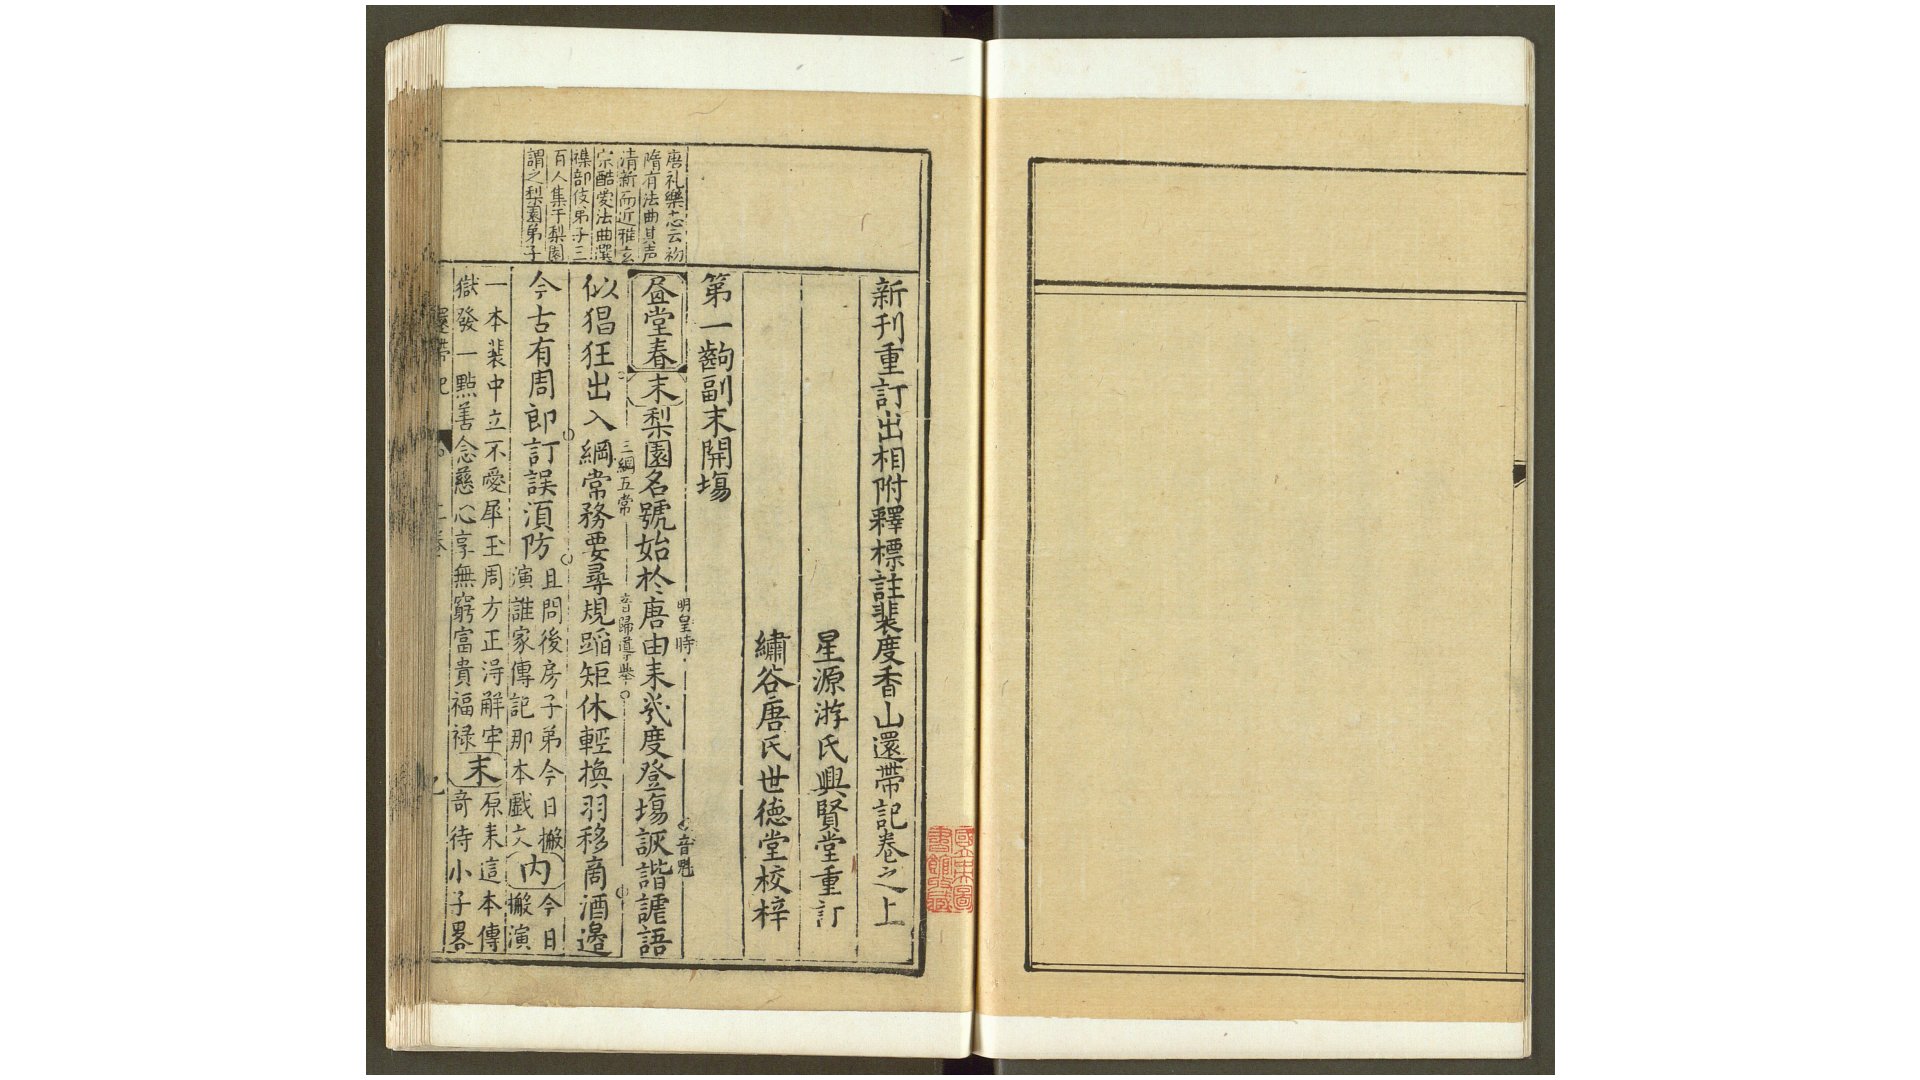 新刊重訂出相附釋標註裴度香山還帶記卷之上
星源游氏興賢堂重訂
繡谷唐氏世德堂校梓
第一齣副末開塲
唐礼樂志云初
隋有法曲其声
清新而近雅玄
宗酷愛法曲選
襍部伎弟子三
百人集于梨園
謂之梨園弟子
明皇時
音魁
昼堂春末梨園名號始於唐由来幾度登塲詼諧謔語
三綱五常
似猖狂出入綱常務要尋規蹈矩休輕換羽移商酒邊
今古有周郎訂誤湏防且問後房子弟今日搬
演誰家傳記那本戲文内今日搬演
一本裴中立不愛犀玉周方正淂觧牢
獄發一點善念慈心享無窮富貴福禄末原来這本傳
奇待小子畧
還帶記
國立中央圖
書館收藏